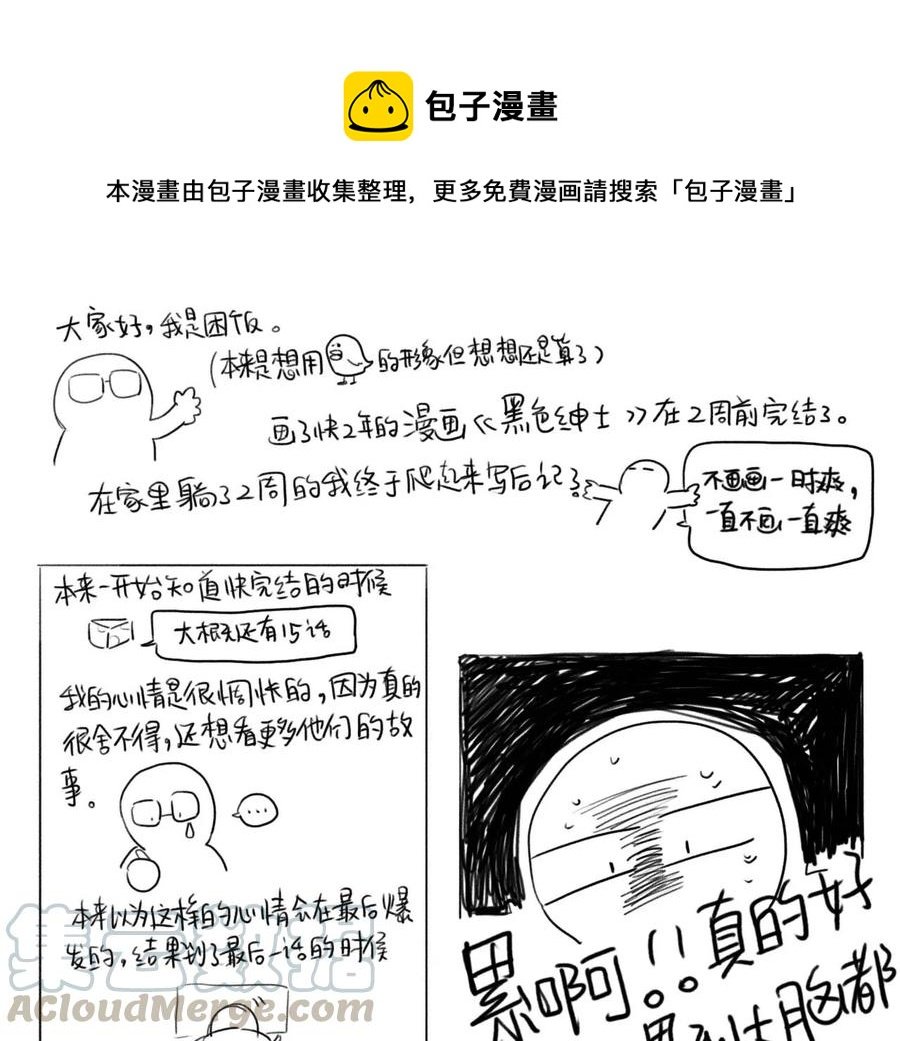 包子漫畫
本漫畫由包子漫畫收集整理，更多免費漫画請搜索「包子漫畫」
大家好，我是困饭。
(本来是想用 的形象但想想还是算了)
画了快2年的漫画《黑色绅士》在2周前完结了。
在家里躺了2周的我终于爬起来写后记了
不画画一时爽，
一直不画一直爽
本来一开始知道快完结的时候
大概还有15话
我的心情是很惆怅的，因为真的
很舍不得，还想看更多他们的故
事。
...
本来以为这样的心情会在最后爆
发的，结果到了最后一话的时候
真的好
累啊！！
大脑都
集云数据
AcloudMerge.com